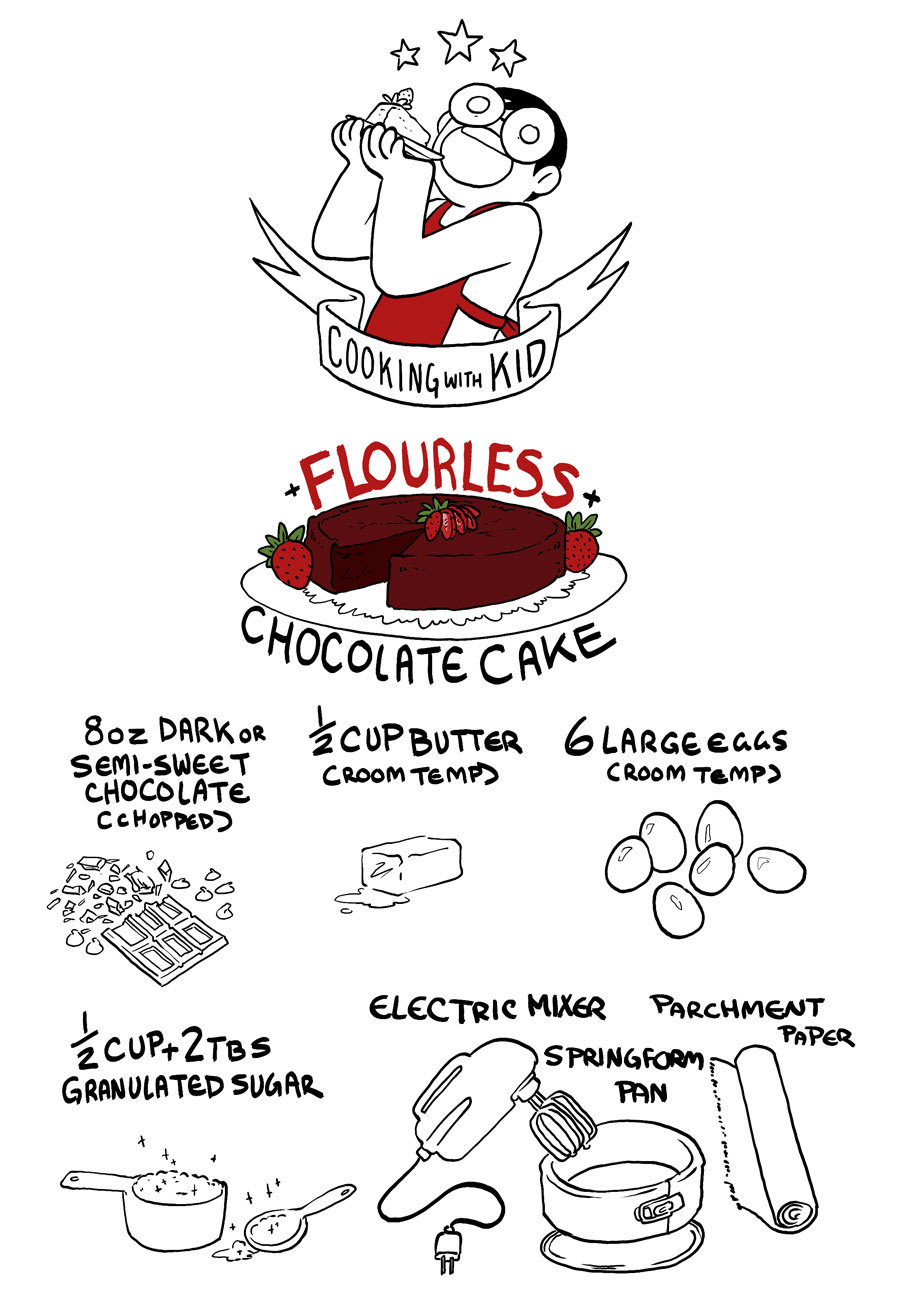 COOKING WITH KID
FLOURLESS
CHOCOLATE CAKE
8oz DARK OR
SEMI-SWEET
CHOCOLATE
(CHOPPED)
½ CUP BUTTER
(ROOM TEMP)
6 LARGE EGGS
(ROOM TEMP)
½ CUP + 2 TBS
GRANULATED SUGAR
ELECTRIC MIXER
SPRINGFORM
PAN
PARCHMENT
PAPER